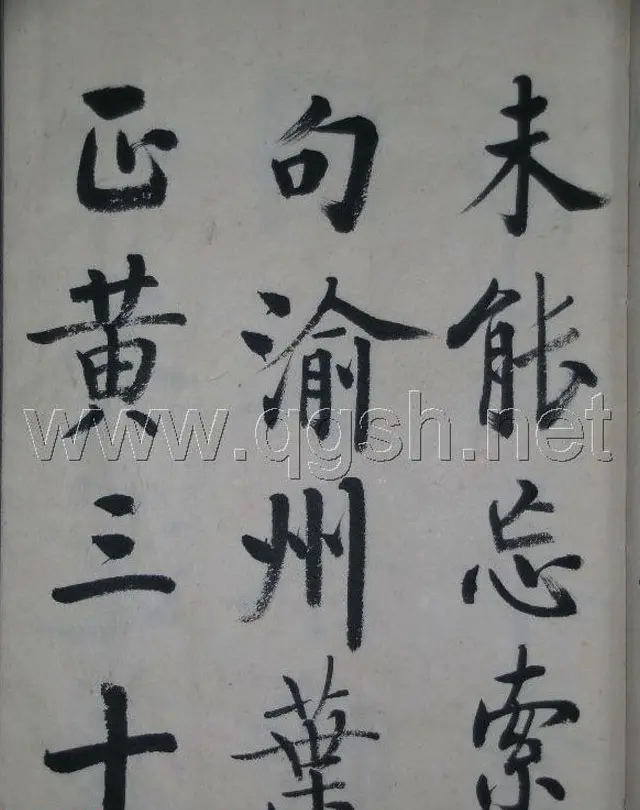 未能忘索
句渝州葉
正黃三十
www.qgsh.net